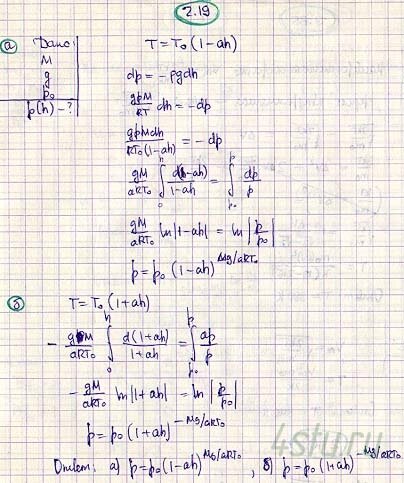 2.19
а) Дано:
M
g
p₀
p(h) - ?
T = T₀ (1 - ah)
dp = - ρgdh
gpM/RT dh = - dp
gpMdh/RT₀(1-ah) = - dp
gM/aRT₀ ∫₀ʰ d(1-ah)/1-ah = ∫ₚ₀ᵖ dp/p
gM/aRT₀ ln|1-ah| = ln|p/p₀|
p = p₀ (1-ah)^Mg/aRT₀
б) T = T₀ (1+ah)
- gM/aRT₀ ∫₀ʰ d(1+ah)/1+ah = ∫ₚ₀ᵖ dp/p
- gM/aRT₀ ln|1+ah| = ln|p/p₀|
p = p₀ (1+ah)^-Mg/aRT₀
Ответ: а) p=p₀(1-ah)^Mg/aRT₀ , б) p=p₀(1+ah)^-Mg/aRT₀
4stu.ru